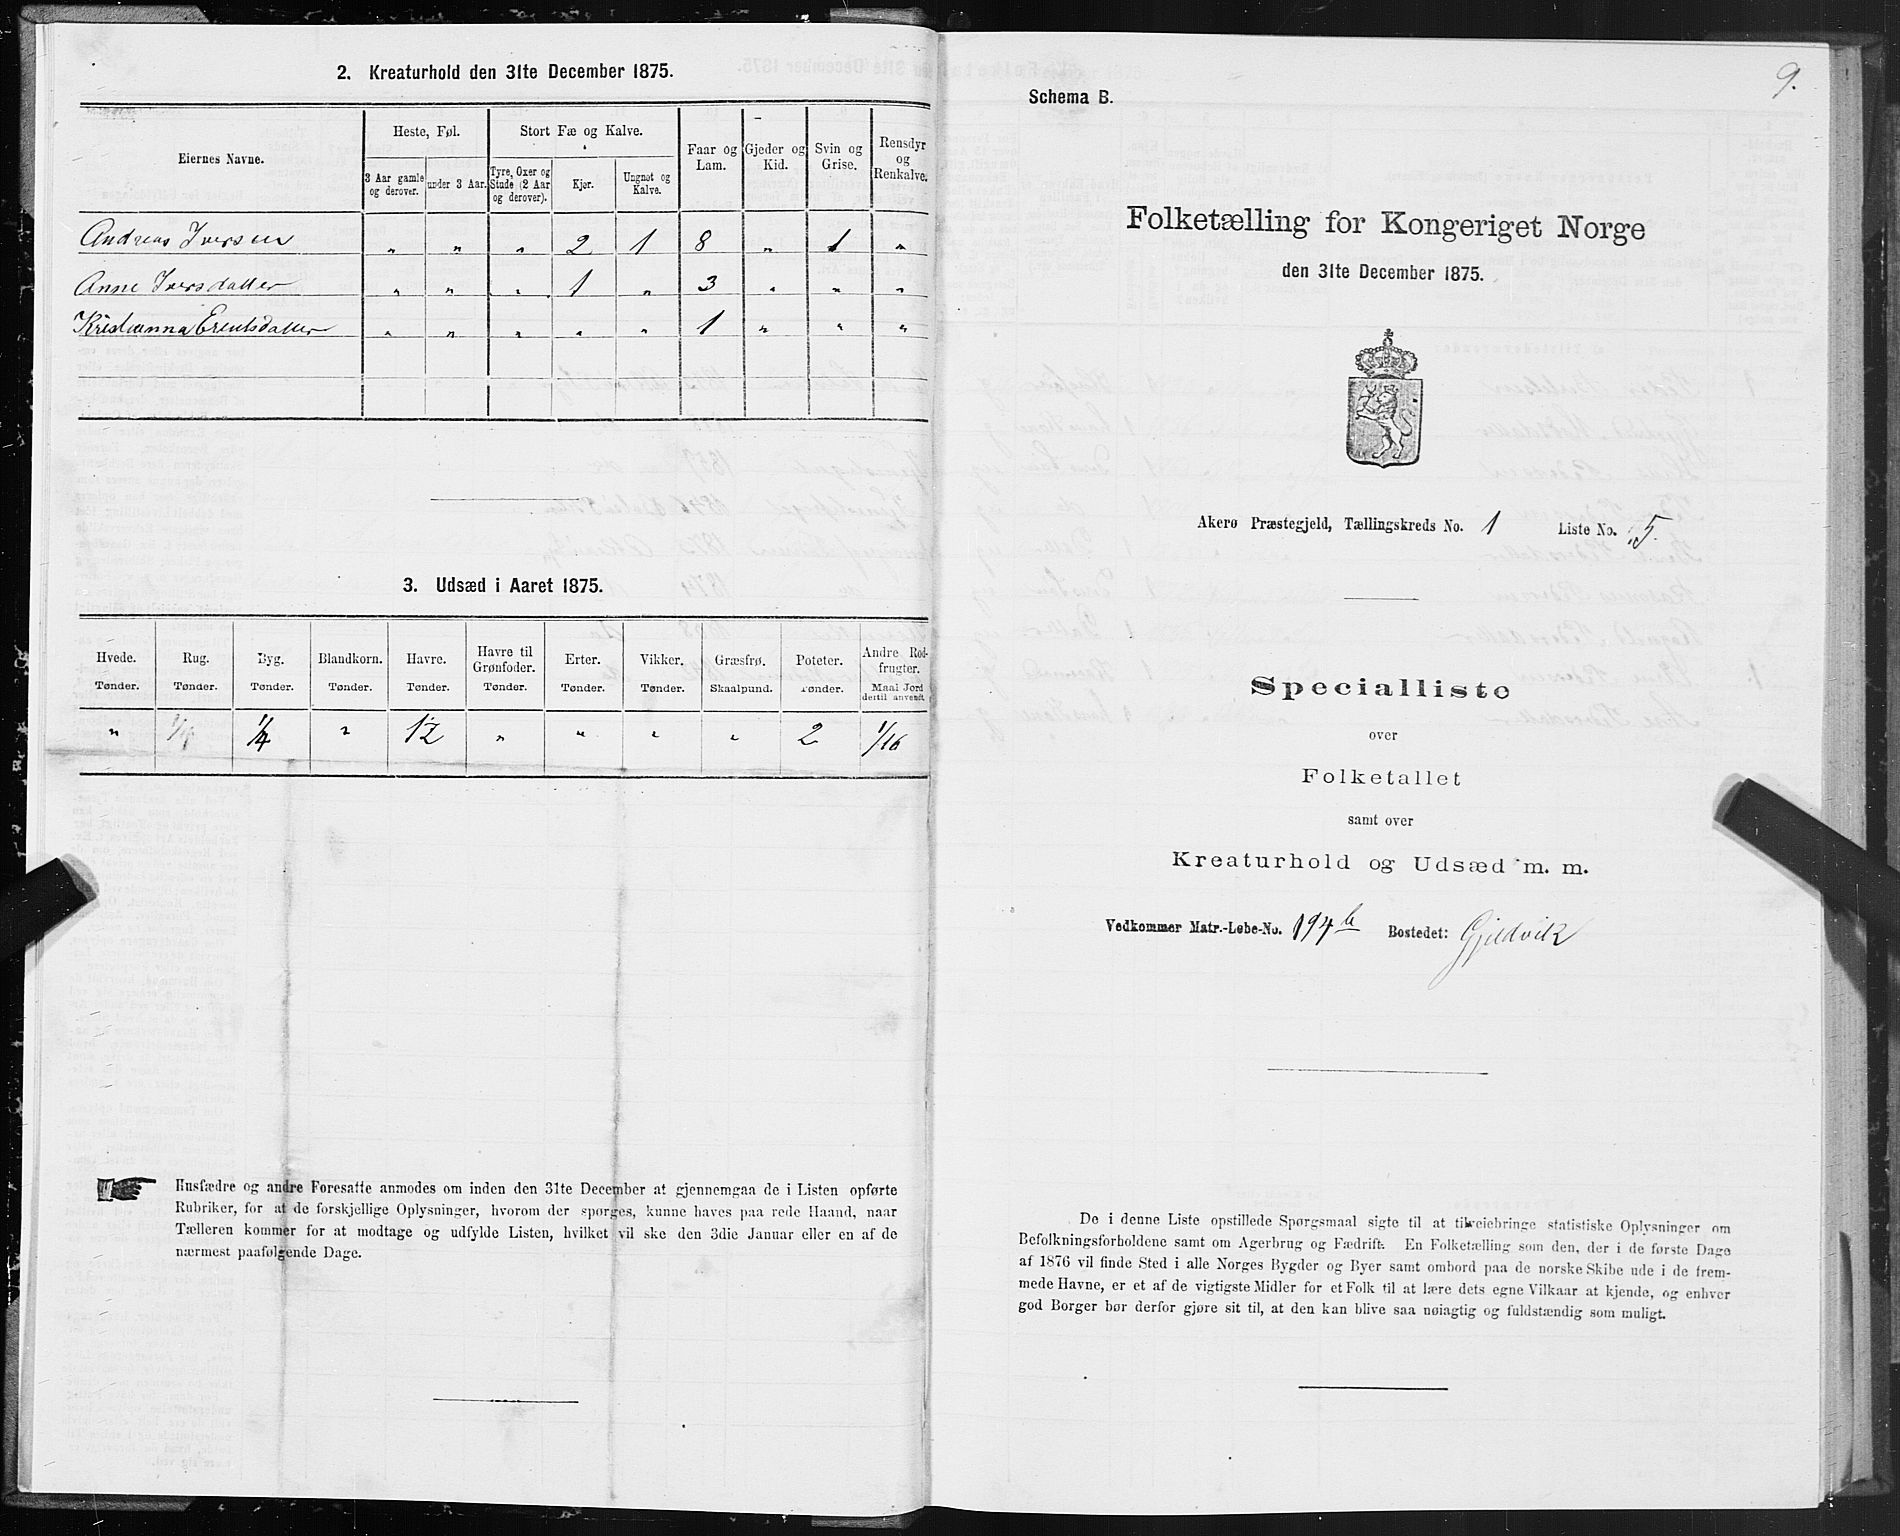 2. Kreaturhold den 31te December 1875.
Eiernes Navne.
Heste, Føl.
Stort Fæ og Kalve.
Faar og Lam.
Gjeder og Kid.
Svin og Grise.
Rensdyr og Renkalve.
3 Aar gamle og derover.
under 3 Aar.
Tyre, Oxer og Stude (2 Aar og derover).
Kjør.
Ungnøt og Kalve.
Andreas Iversen " " " 2 1 8 " 1 "
Anne Iversdatter " " " 1 " 3 " " "
Kristianna Erentsdatter " " " " " 1 " " "
3. Udsæd i Aaret 1875.
Hvede. Rug. Byg. Blandkorn. Havre. Havre til Grønfoder. Erter. Vikker. Græsfrø. Poteter. Andre Rodfrugter.
Tønder. Tønder. Tønder. Tønder. Tønder. Tønder. Tønder. Tønder. Skaalpund. Tønder. Maal Jord dertil anvendt
" 1/4 " 12 " " " " 2 1/16
Husfædre og andre Foresatte anmodes om inden den 31te December at gjennemgaa de i Listen opførte
Rubriker, for at de forskjellige Oplysninger, hvorom der spørges, kunne haves paa rede Haand, naar
Tælleren kommer for at modtage og udfylde Listen, hvilket vil ske den 3die Januar eller en af de
nærmest paafølgende Dage.
9.
Schema B.
Folketælling for Kongeriget Norge
den 31te December 1875.
Akerø Præstegjeld, Tællingskreds No. 1 Liste No. 5.
Specialliste
over
Folketallet
samt over
Kreaturhold og Udsæd m. m.
Vedkommer Matr.-Løbe-No. 194b Bostedet: Gjeldvik
De i denne Liste opstillede Spørgsmaal sigte til at tilveiebringe statistiske Oplysninger om
Befolkningsforholdene samt om Agerbrug og Fædrift. En Folketælling som den, der i de første Dage
af 1876 vil finde Sted i alle Norges Bygder og Byer samt ombord paa de norske Skibe ude i de frem-
mede Havne, er et af de vigtigste Midler for et Folk til at lære dets egne Vilkaar at kjende, og enhver
god Borger bør derfor gjøre sit til, at den kan blive saa nøiagtig og fuldstændig som muligt.